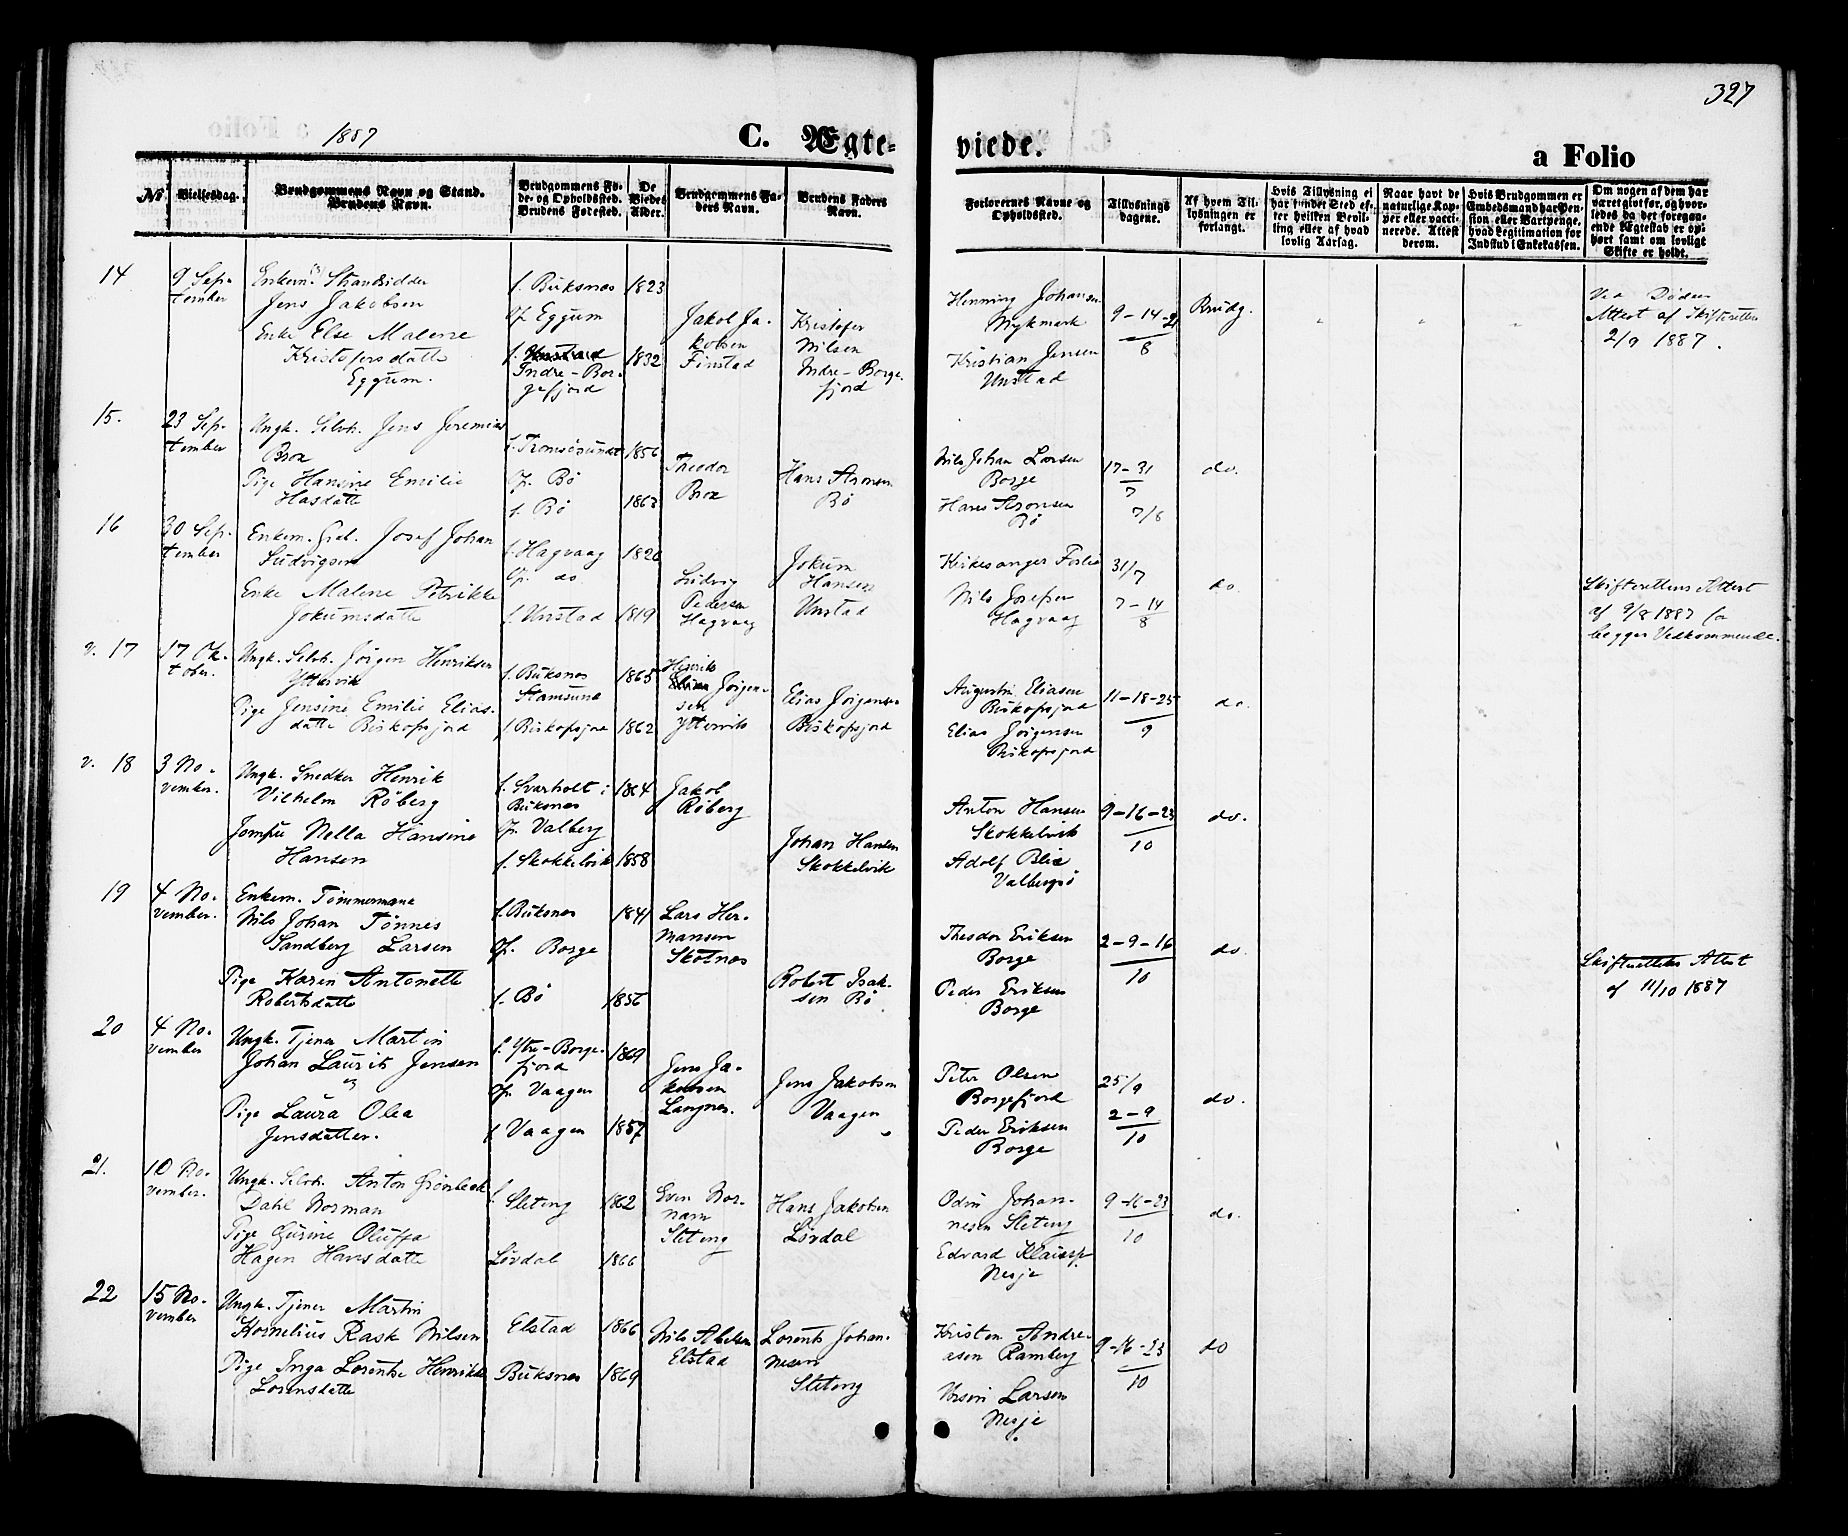 327
1887
C. Ægte-
viede.
a Folio
No
Vielsesdag.
Brudgommens Navn og Stand.
Brudens Navn.
Brudgommens Fø-
de- og Opholdssted.
Brudens Fødested.
De
Viedes
Alder.
Brudgommens Fa-
ders Navn.
Brudens Faders
Navn.
Forlovernes Navne og
Opholdssted.
Tillysnings
dagene.
Af hvem Til-
lysningen er
forlangt.
Hvis Tillysning ei
har fundet Sted ef-
ter hvilken Bevil-
ling eller af hvad
lovlig Aarsag.
Naar havt de
naturlige Kop-
per eller vacci-
nerede. Attest
derom.
Hvis Brudgommen er
Embedsmand har Pen-
sion eller Vartpenge,
hvad Legitimation for
Indskud i Enkekassen.
Om nogen af dem har
været givt før, og hvor-
ledes da det foregaa-
ende Ægteskab er op-
hørt samt om lovligt
Skifte er holdt.
14
9 Sep-
tember
Enkem. Strandsidder
Jens Jakobsen
Enke Else Malene
Kristofersdatte
Eggum.
f. Buksnes
Op Eggum
f. Unstad
Indre-Bor-
gefjord
1823
1832
Jakob Ja-
kobsen
Finstad
Kristofer
Nilsen
Indre-Borge-
fjord
Henning Johansen
Mykmark
Kristian Jensen
Unstad
9-14-21
8
Brudg.
Ved Døden
Attest af Skifteretten
2/9 1887.
15.
23 Sep-
tember
Ungk. Selvh. Jens Jeremias
Brox
Pige Hansine Emilie
Hasdatte
f. Tromsøsundet
Op. Bø
f. Bø
1856
1863
Theodor
Brox
Hans Aronsen
Bø
Nils Johan Larsen
Borge
Hans Aronsen
Bø
17-31
7
7/8
do.
16
30 Sep-
tember
Enkem. Gael. Josef Johan
Ludvigsen
Enke Malene Petrikke
Jokumsdatte
f. Hagvaag
Op. do.
f. Unstad
1820
1819
Ludvig
Pedersen
Hagvaag
Jokum
Hansen
Unstad
Kirkesanger
Nils Josefsen
Hagvaag
31/7
7-14
8
do.
Skifterettens Attest
af 9/8 1887 for
begges Vedkommende.
v. 17
17 Ok-
tober.
Ungk. Selvh. Jørgen Henriksen
Yttervik
Pige Jensine Emilie Elias-
datte Biskopsjord
f. Buksnes
Stamsund
f. Biskopsjord
1865
1862
Henrik
Elias Jørgen-
sen
Yttervik
Elias Jørgensen
Biskopsjord
Augustin Eliasen
Biskopsjord
Elias Jørgensen
Biskopsjord
11-18-25
9
do.
v. 18
3 No-
vember.
Ungk. Snedker Henrik
Vilhelm Røberg
Jomfru Nella Hansine
Hansen
f. Svarholt i
Buksnes
Op. Valberg
f. Skokkelvik
1864
1858
Jakob
Røberg
Johan Hansen
Skokkelvik
Anton Hansen
Skokkelvik
Adolf Blix
Valbergsø
9-16-23
10
do.
19
4 No-
vember.
Enkem. Tømmermand
Nils Johan Tønnes
Sandberg Larsen
Pige Karen Antonette
Robertsdatte
f. Buksnes
Op. Borge
f. Bø
1841
1856
Lars Her-
mansen
Skotnes
Robert Isak-
sen Bø
Theodor Eriksen
Borge
Peder Eriksen
Borge
2-9-16
10
do.
Skifterettens Attest
af 11/10 1887
20
4 No-
vember
Ungk. Tjener Martin
Johan Laurits Jensen
og
Pige Laura Olea
Jensdatter.
f. Ytre-Borge-
fjord
Op. Vaagen
f Vaagen
1869
1857
Jens Ja-
kobsen
Langnes.
Jens Jakobsen
Vaagen
Peter Olsen
Borgefjord
Peder Eriksen
Borge
25/9
2-9
10
do.
21.
10 No-
vember.
Ungk. Selvh. Anton Grønbeck
Dahl Norman
Pige Gurine Oluffa
Hagen Hansdatte
f. Sletteng
Løvdal
1862
1866
Even Nor-
mam
Sleteng
Hans Jakobsen
Løvdal
Odin Johan-
nesen Sleteng
Edvard Klaussen
Nesje
9-16-23
10
do.
22
15 No-
vember
Ungk. Tjener Martin
Kornelius Rask Nilsen
Pige Inga Lorentse Henrikke
Lorensdatte
Elstad
Buksnes
1866
1869
Nils Abelsen
Elstad
Lorents Johan-
nesen
Sleteng
Kristen Andre-
asen Ramberg
Larsen
Nesje
9-16-23
10
do